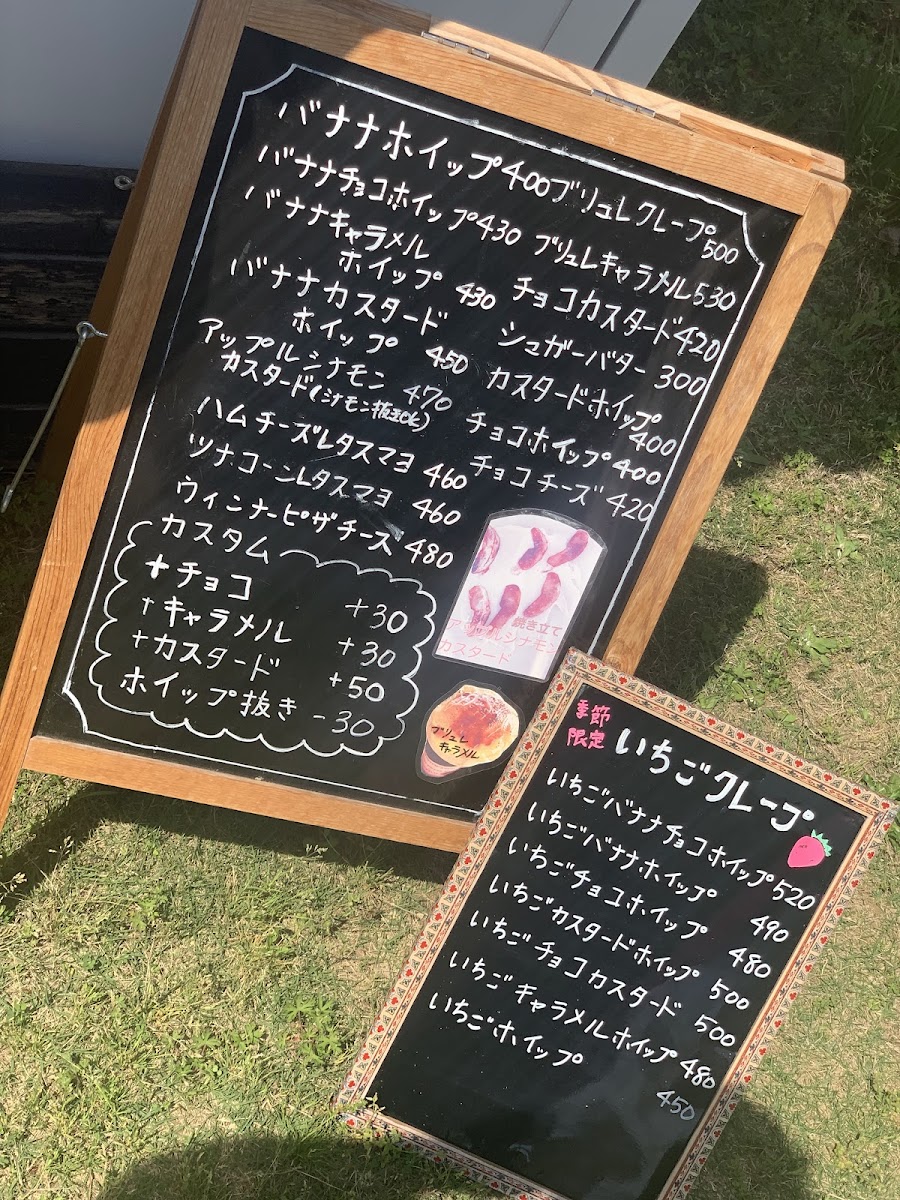 バナナホイップ400
バナナチョコホイップ430
バナナキャラメル
ホイップ 430
バナナカスタード
ホイップ 450
アップルシナモン 470
カスタード(シナモン抜きOK)
ハムチーズレタスマヨ 460
ツナコーンレタスマヨ 460
ウィンナーピザチーズ 480
ブリュレクレープ
500
ブリュレキャラメル530
チョコカスタード420
シュガーバター 300
カスタードホイップ
400
チョコホイップ400
チョコチーズ 420
カスタム
+チョコ +30
+キャラメル +30
+カスタード +50
ホイップ抜き -30
焼き立て
アップルシナモン
カスタード
ブリュレ
キャラメル
季節
限定
いちごクレープ
いちごバナナチョコホイップ520
いちごバナナホイップ 490
いちごチョコホイップ 480
いちごカスタードホイップ 500
いちごチョコカスタード 500
いちごキャラメルホイップ 480
いちごホイップ 450